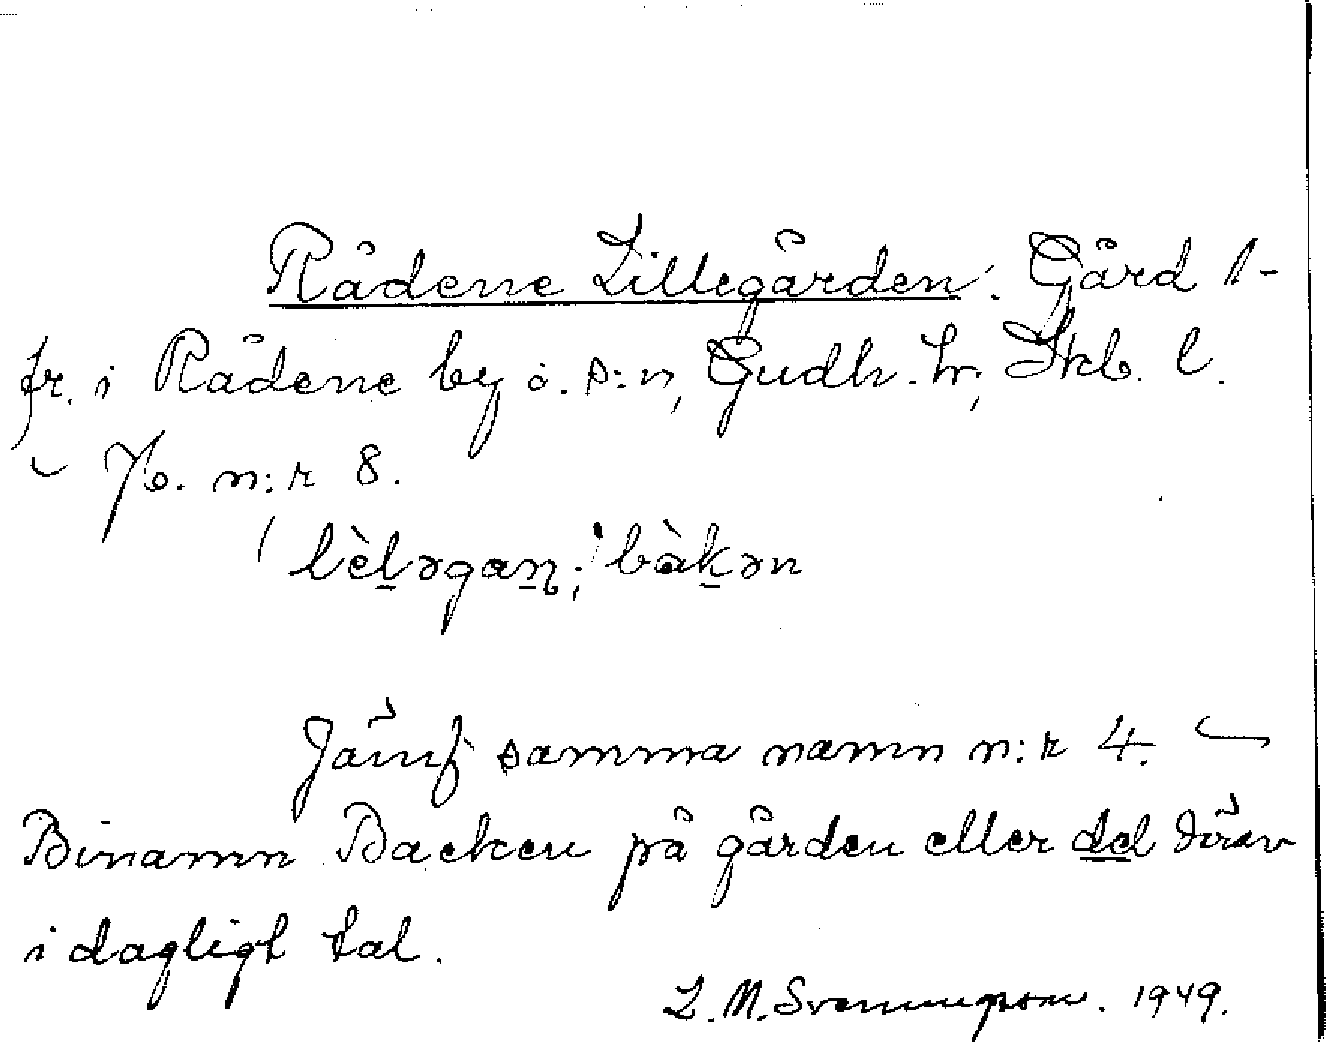 Rådene Lillegården. Gård 1-
fr. i Rådene by o. s:n, Gudh. hr, Skb. l.
Jb. n:r 8.
lèlǝgaṉ; bàkǝn
Jämf samma namn n:r 4.
Binamn Backen på gården eller del därav
i dagligt tal.
L. M. Svenungsson. 1949.